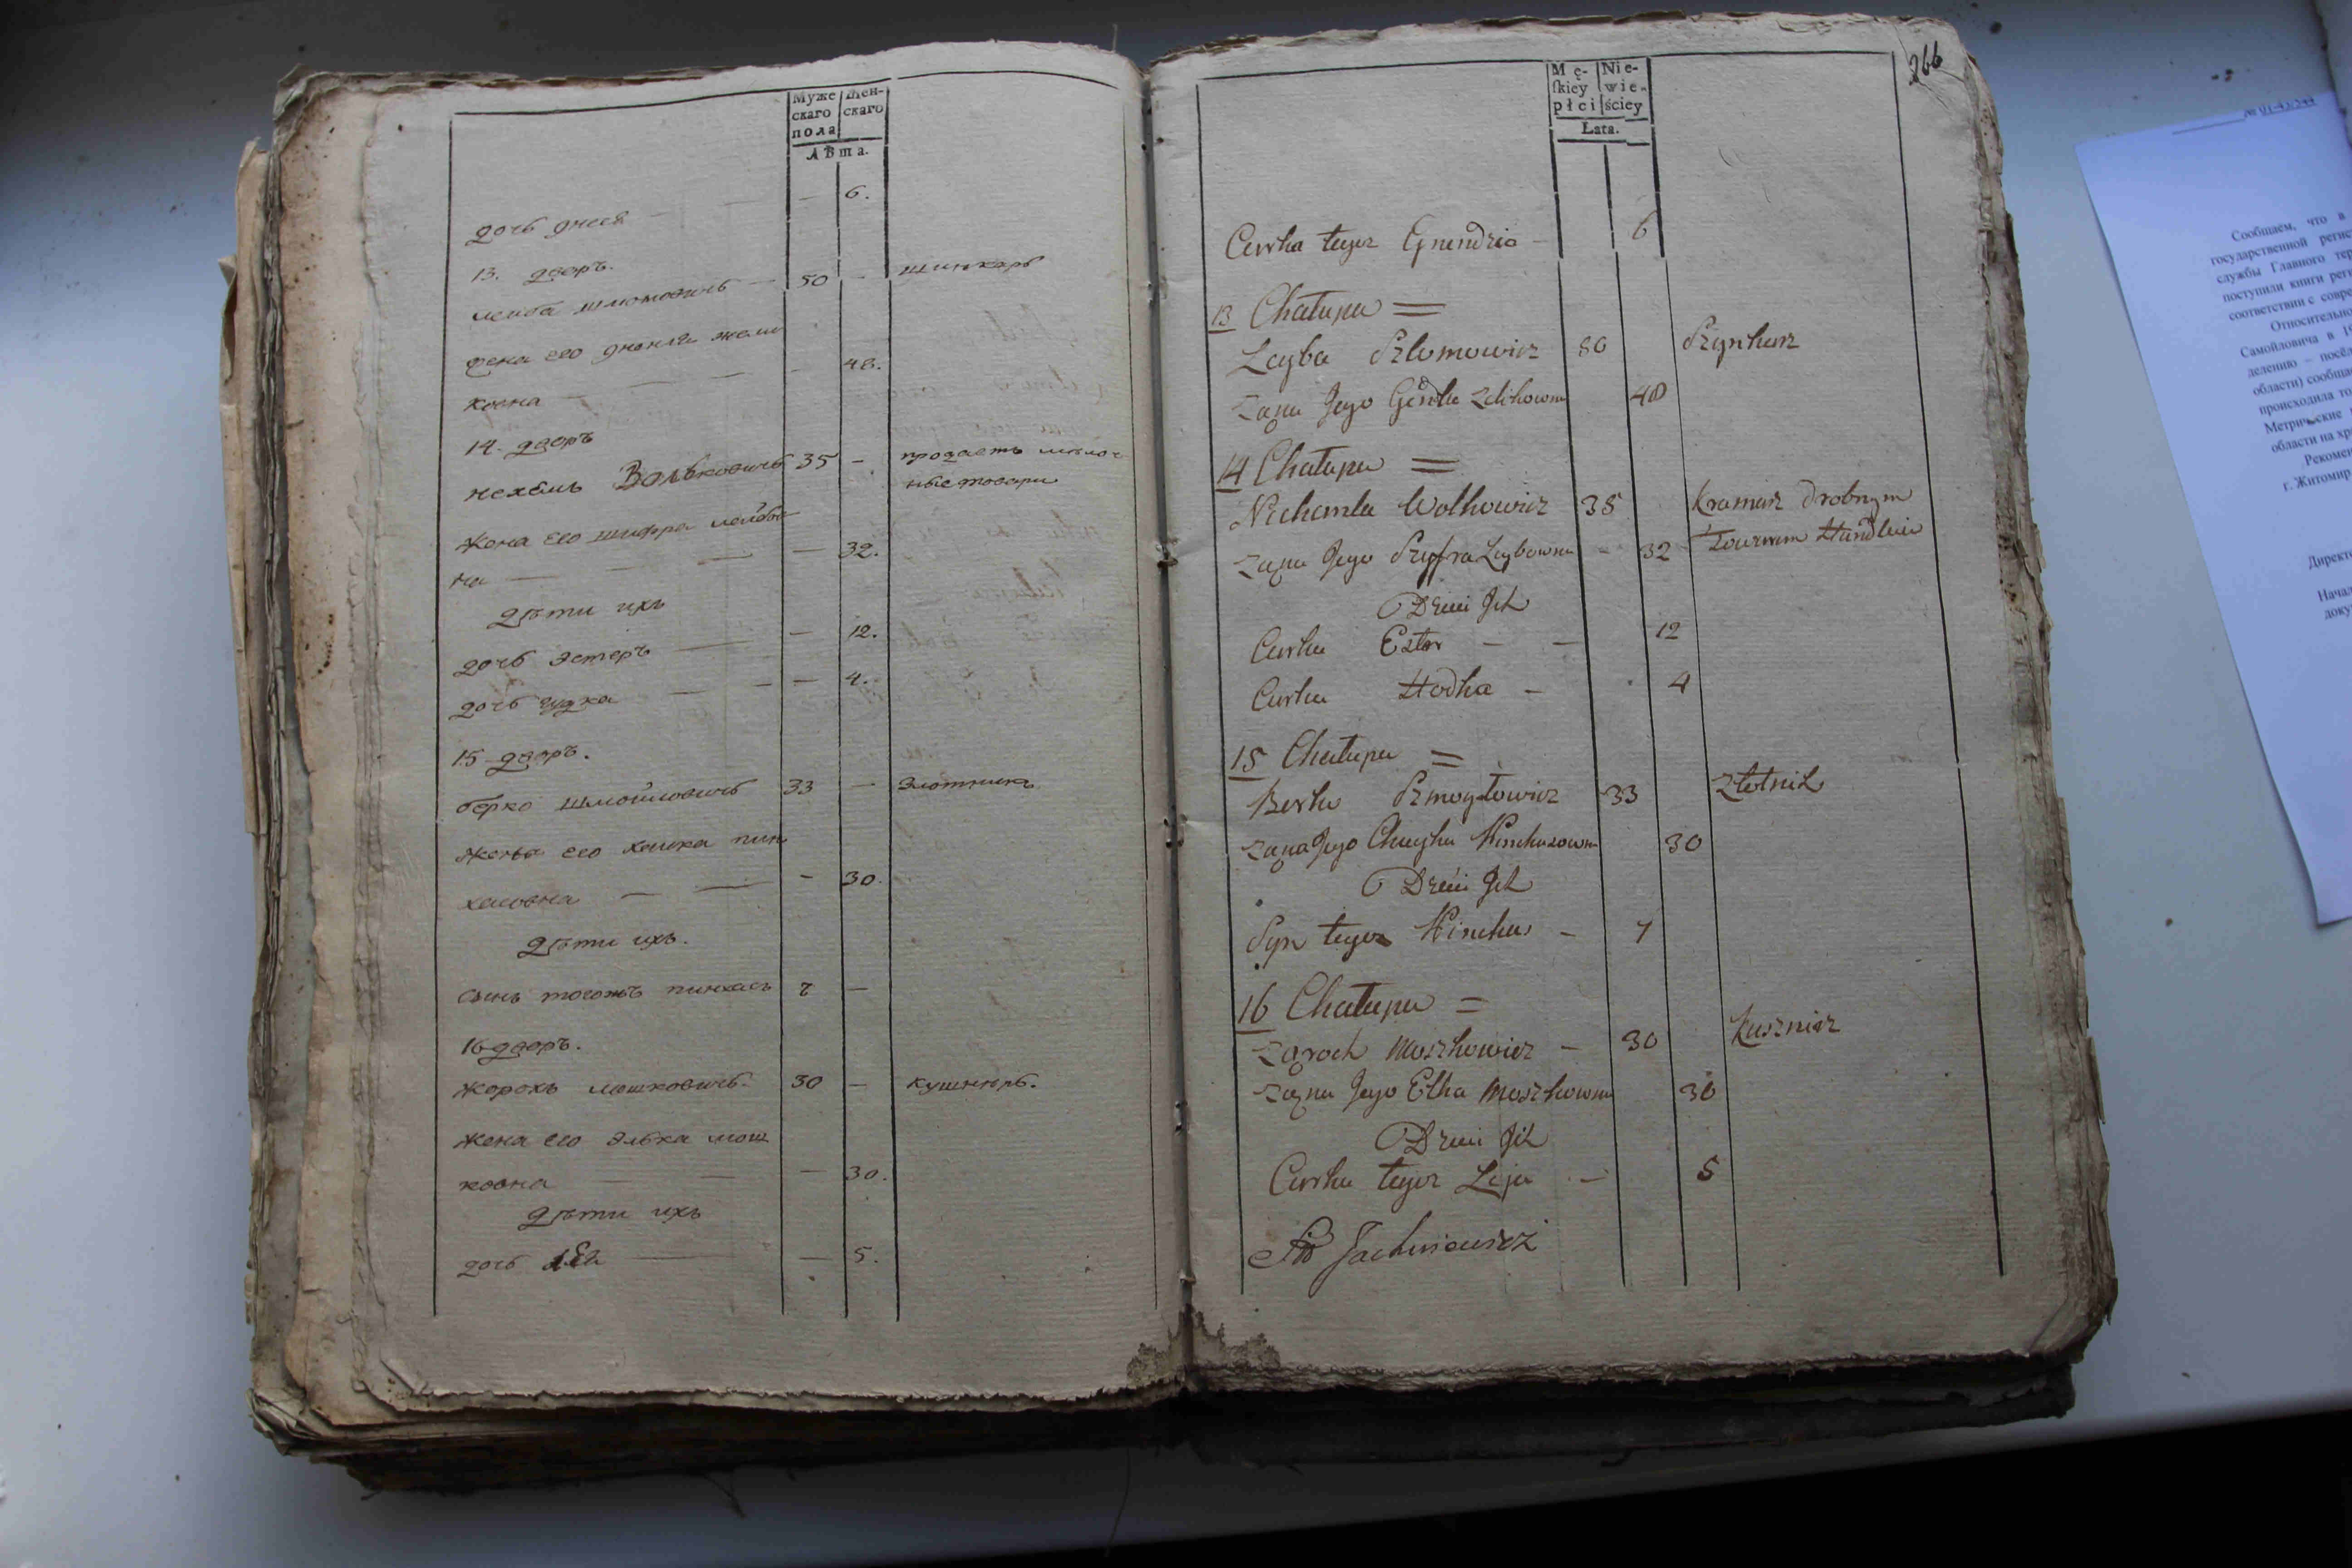 Муже Жен-
скаго скаго
пола
Лѣта.
дочь гнеся — — — 6.
13. дворъ.
лейба шломовичь — 50 — шинкаръ
жена его гненля зели
ковна — — — 48.
14. дворъ
нехемь Вольковичь 35 — продаетъ мѣлоч
ные товары
жена его шифра лейбов
на — — — 32.
дѣти ихъ
дочь эстеръ — — 12.
дочь гудка — — — 4.
15 дворъ.
берко шмойловичь 33 — золотникъ
жена его хайка пин
хасовна — — - 30.
дѣти ихъ.
сынъ тогожъ пинхасъ 7 —
16 дворъ.
жорохъ мошковичь. 30 — кушнѣръ.
жена его элька мош
ковна — — — 30.
дѣти ихъ
дочь лея — — 5.
266
Mę- Nie-
skiey wie-
płci ściey
Lata.
Corka teyez Gnendzia — 6
13 Chałupa =
Leyba Szlomowicz 50 Szynkarz
Zona Jego Zelikowna 48
14 Chałupa =
Nechemla Wolkowicz 35 Kramarz drobnym
Zona Jego Szyfra Leybowna - 32 Towarem Handluie
Dzieci Jch
Corka Ester — — 12
Corka Hodka — 4
15 Chałupa =
Berko Szmoyłowicz 33 Złotnik
Zona Jego Chayka Pinchasowna 30
Dzieci Jch
Syn tegoz Pinchas — 7
16 Chałupa =
Zoroch Moszkowicz — 30 Kusznierz
Zona Jego Elka Moszkowna 30
Dzieci Jch
Corka teyez Leja — 5
№ 01-43/544
Сообщаем, что в
государственной регис
службы Главного тер
поступили книги реги
соответствии с совре
Относительно
Самойловича в 1
делению – посёл
области) сообща
происходила то
Метрические
области на хр
Рекомен
г. Житомир
Директо
Начал
доку